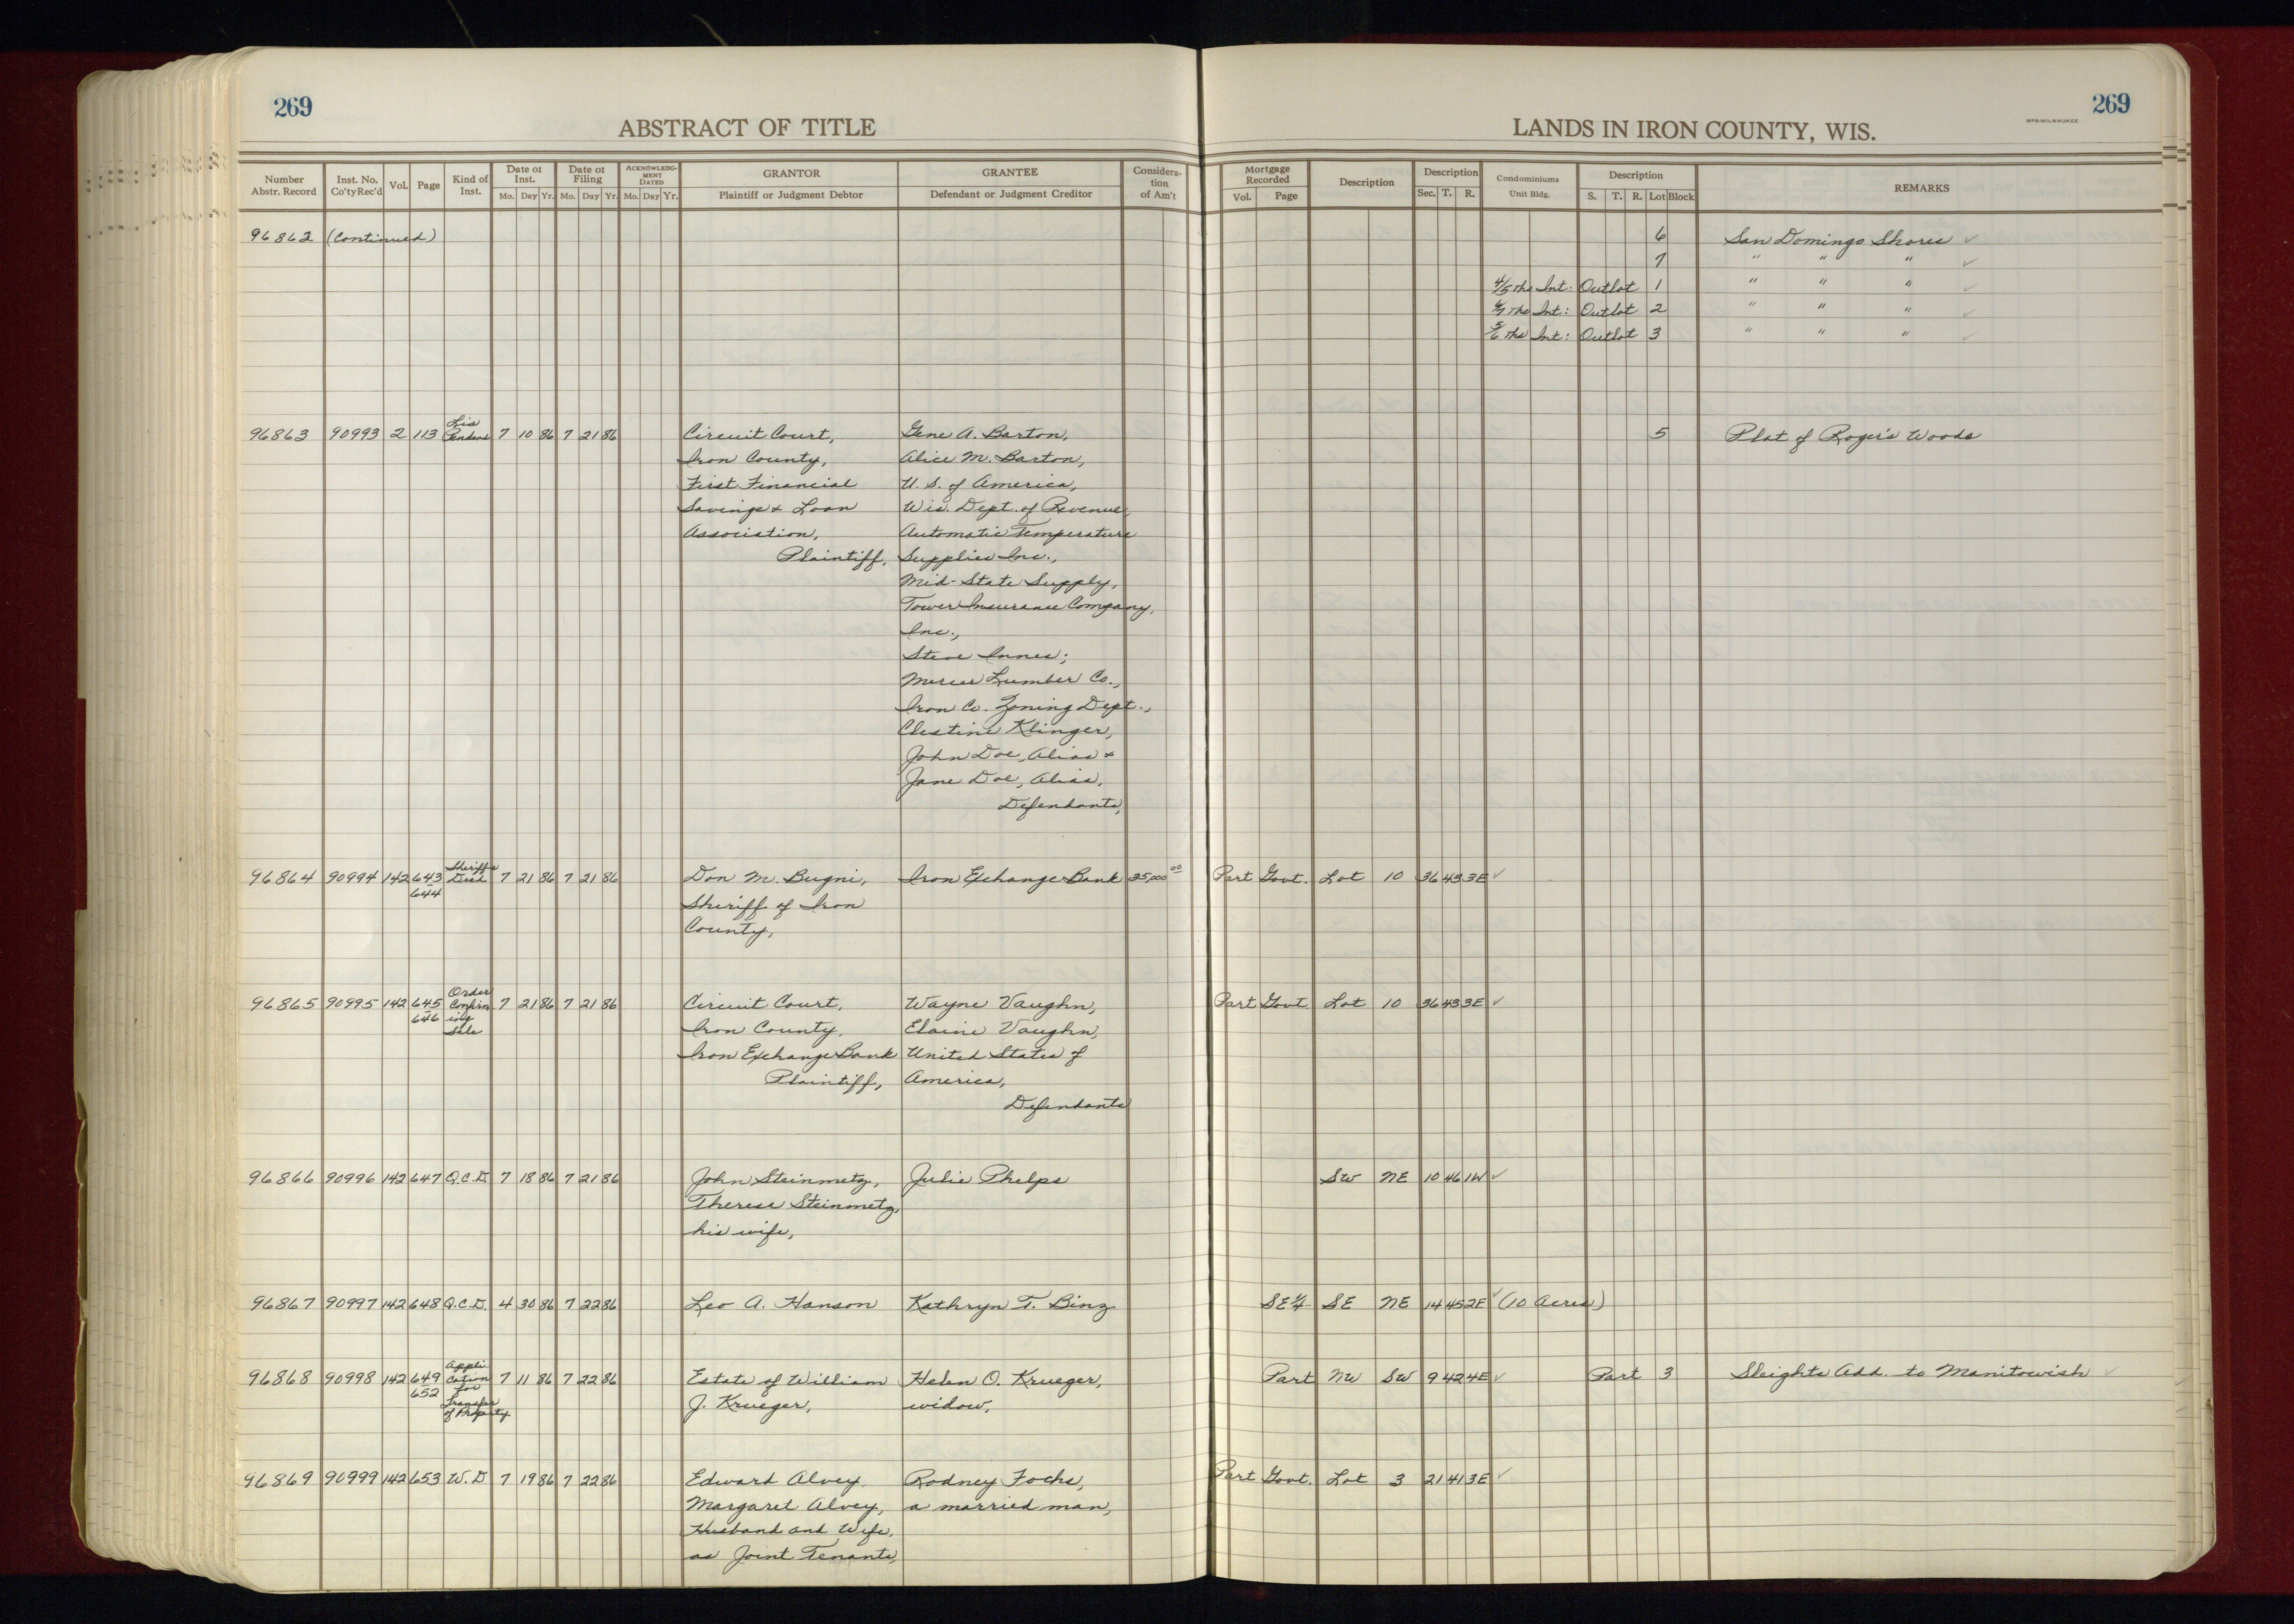 269
269
ABSTRACT OF TITLE
LANDS IN IRON COUNTY, WIS.
WPB-MILWAUKEE
Number Abstr. Record | Inst. No. Co'ty Rec'd | Vol. | Page | Kind of Inst. | Date of Inst. Mo. Day Yr. | Date of Filing Mo. Day Yr. | ACKNOWLEDGMENT DATED Mo. Day Yr. | GRANTOR Plaintiff or Judgment Debtor | GRANTEE Defendant or Judgment Creditor | Consideration of Am't | Mortgage Recorded Vol. Page | Description | Description Sec. T. R. | Condominiums Unit Bldg. | Description S. T. R. Lot Block | REMARKS
96862 (Continued) 6 San Domingo Shores ✓
7 " " " ✓
4/5ths Int: Outlot 1 " " " ✓
6/7ths Int: Outlot 2 " " " ✓
5/6ths Int: Outlot 3 " " " ✓
96863 90993 2 113 Lis Pendens 7 10 86 7 21 86 Circuit Court, Gene A. Barton, 5 Plat of Roger's Woods
Iron County, Alice M. Barton,
First Financial U. S. of America,
Savings & Loan Wis. Dept. of Revenue,
Association, Automatic Temperature
Plaintiff, Supplies Inc.,
Mid-State Supply,
Tower Insurance Company,
Inc.,
Steve Innes;
Mercer Lumber Co.,
Iron Co. Zoning Dept.,
Clestine Klinger,
John Doe, Alias &
Jane Doe, Alias,
Defendants,
96864 90994 142 643 644 Sheriff's Deed 7 21 86 7 21 86 Don M. Bugni, Iron Exchange Bank 25,000 00 Part Govt. Lot 10 36 43 3E ✓
Sheriff of Iron
County,
96865 90995 142 645 646 Order Confirming Sale 7 21 86 7 21 86 Circuit Court, Wayne Vaughn, Part Govt. Lot 10 36 43 3E ✓
Iron County, Elaine Vaughn,
Iron Exchange Bank United States of
Plaintiff, America,
Defendants
96866 90996 142 647 Q.C.D. 7 18 86 7 21 86 John Steinmetz, Julie Phelps SW NE 10 46 1W ✓
Therese Steinmetz,
his wife,
96867 90997 142 648 Q.C.D. 4 30 86 7 22 86 Leo A. Hanson Kathryn T. Binz SE¼ SE NE 14 45 2E ✓ (10 Acres)
96868 90998 142 649 652 Application for Transfer of Property 7 11 86 7 22 86 Estate of William Helen O. Krueger, Part NW SW 9 42 4E ✓ Part 3 Sleights Add. to Manitowish ✓
J. Krueger, widow,
96869 90999 142 653 W.D 7 19 86 7 22 86 Edward Alvey Rodney Fochs, Part Govt. Lot 3 21 41 3E ✓
Margaret Alvey, a married man,
Husband and Wife,
as Joint Tenants,